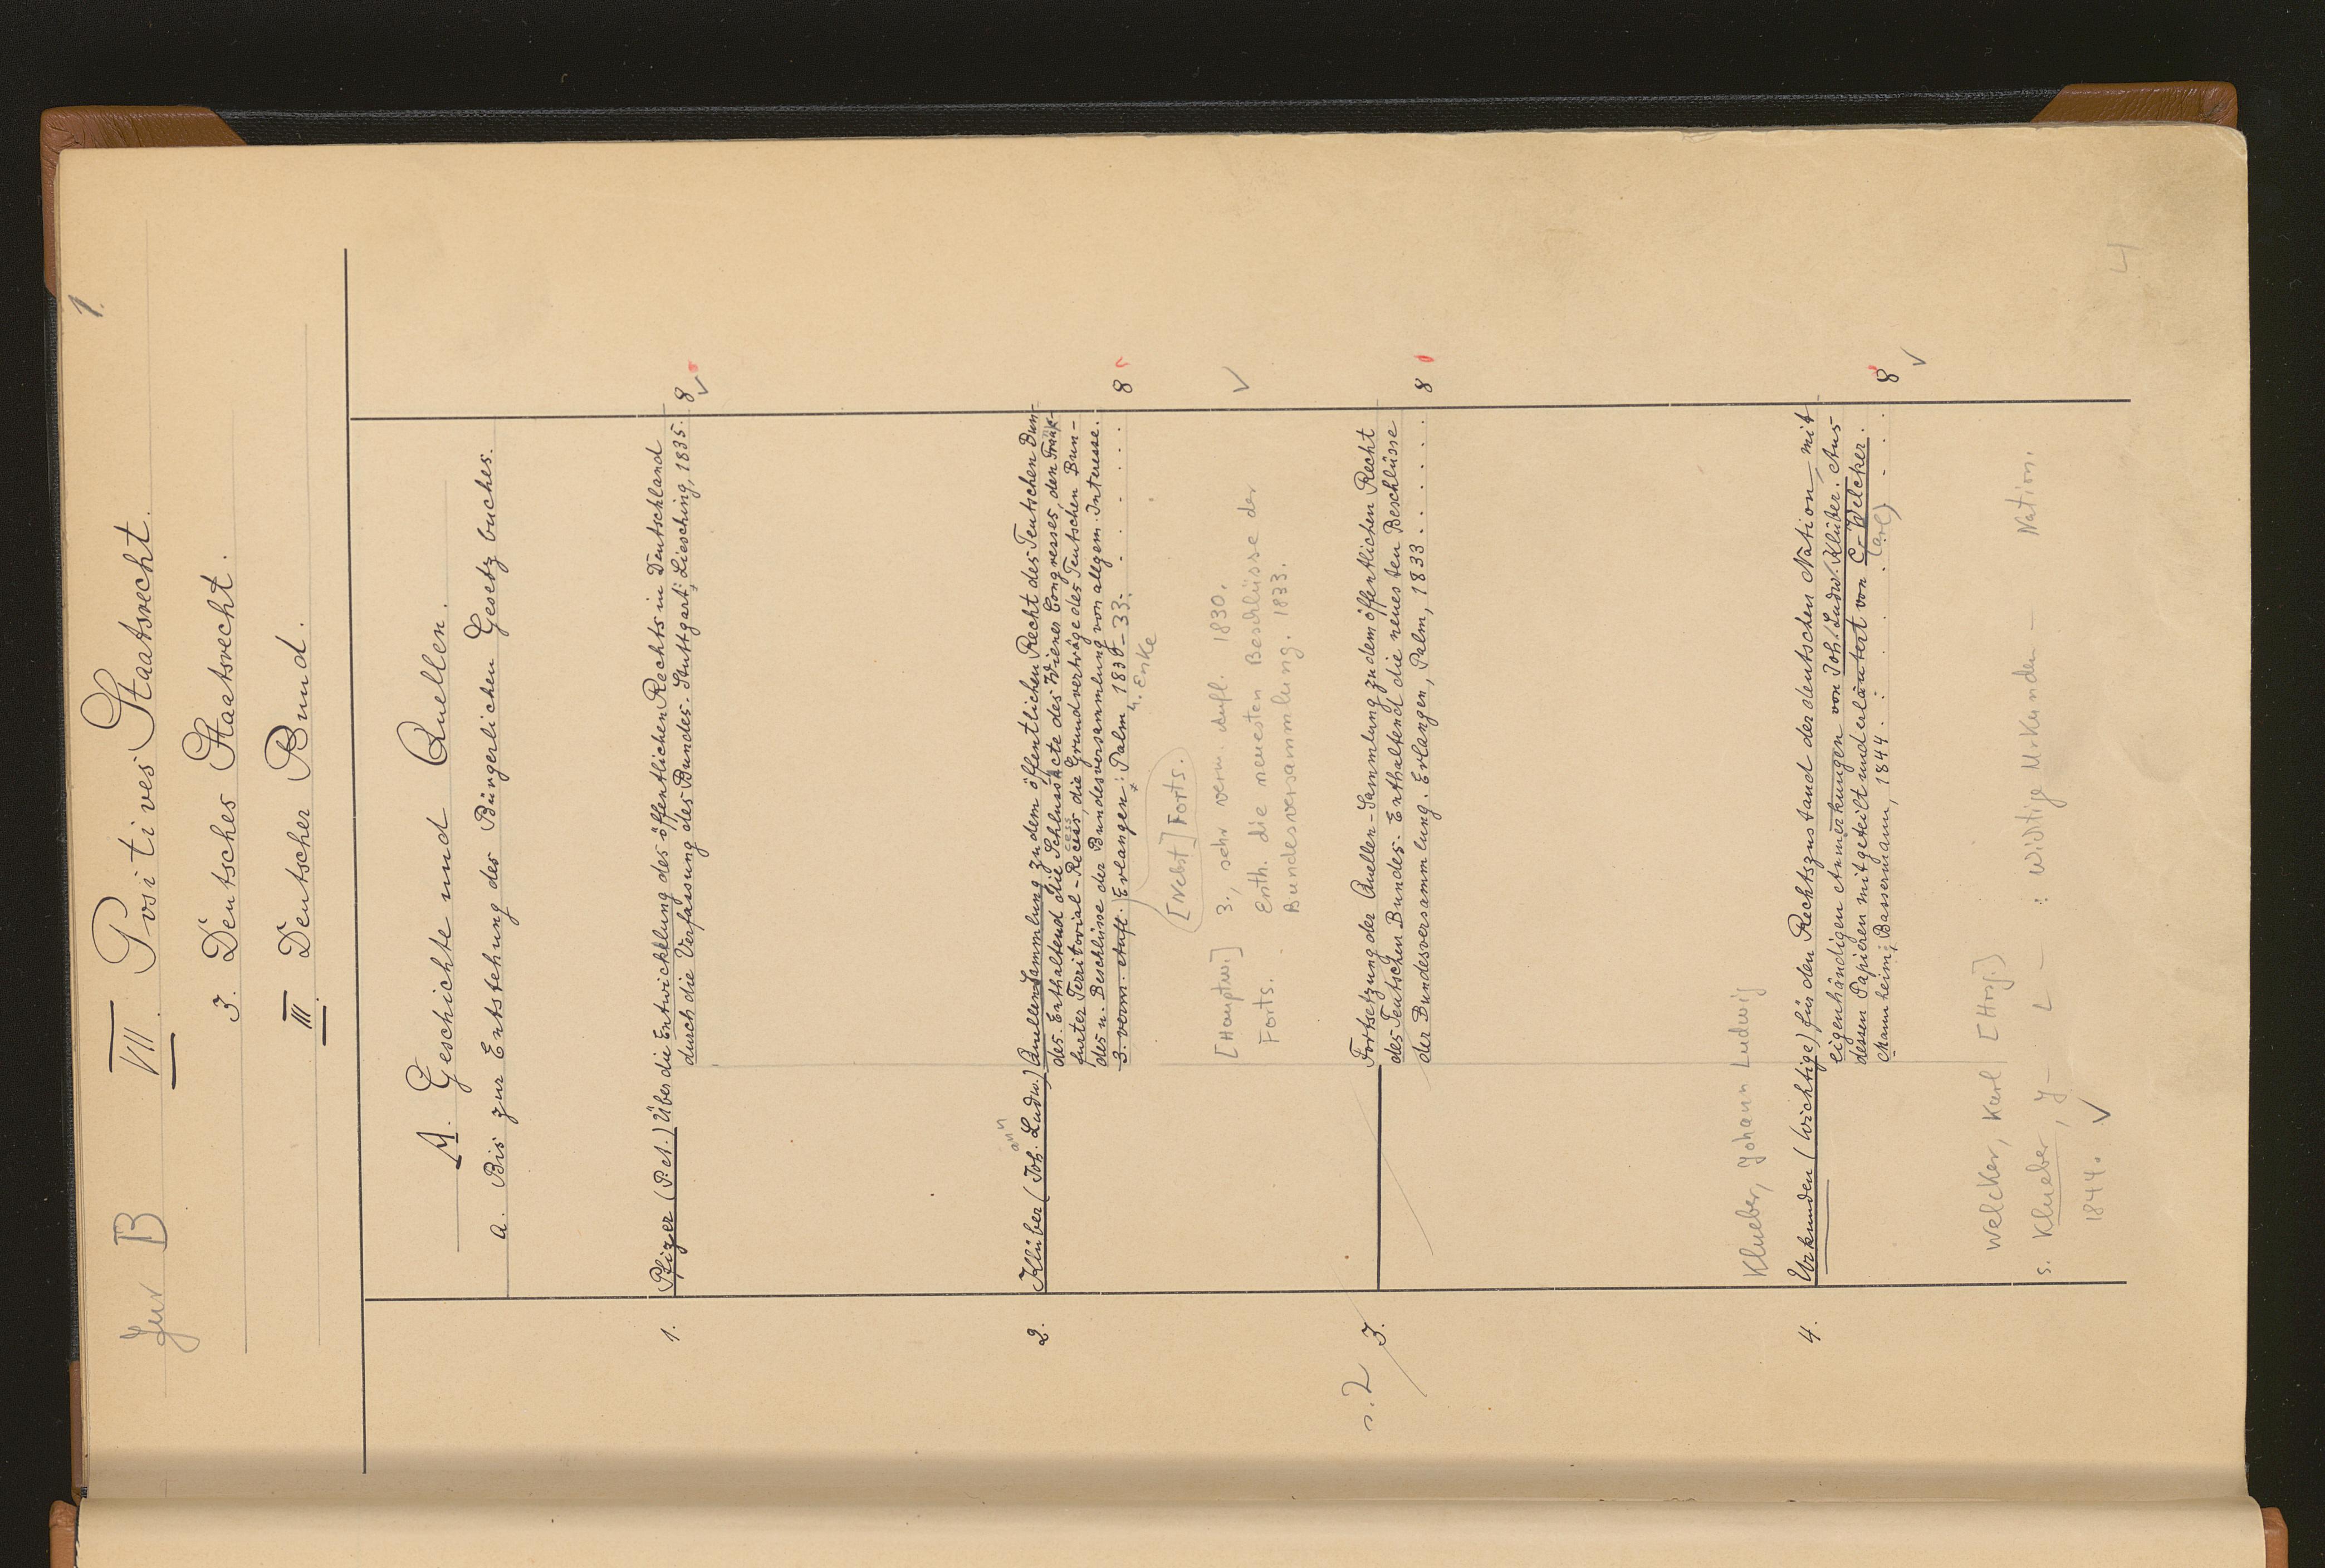 1.
Jur B VII. Positives Staatsrecht.
3. Deutsches Staatsrecht.
III. Deutscher Bund.
A. Geschichte und Quellen.
a. Bis zur Entstehung des Bürgerlichen Gesetzbuches.
1. Pfizer (P. A.) Über die Entwicklung des öffentlichen Rechts in Deutschland
durch die Verfassung des Bundes. Stuttgart, Liesching, 1835. 8
ann
2. Klüber (Joh. Ludw.) Quellen-Sammlung zu dem öffentlichen Recht des Teutschen Bun-
des. Enthaltend die Schlussacte des Wiener Congresses, den Frank-
furter Territorial-Recess, die Grundverträge des Teutschen Bun-
des u. Beschlüsse der Bundesversammlung von allgem. Interesse.
3. verm. Aufl. Erlangen: Palm 1830-33. 8
u. Enke
[Nebst] Forts.
[Hauptw.] 3., sehr verm. Aufl. 1830.
Forts. Enth. die neuesten Beschlüsse der
Bundesversammlung. 1833.
s. 2 3. Fortsetzung der Quellen-Sammlung zu dem öffentlichen Recht
des Teutschen Bundes. Enthaltend die neuesten Beschlüsse
der Bundesversammlung. Erlangen, Palm, 1833. 8
Klueber, Johann Ludwig
4. Urkunden (Wichtige) für den Rechtszustand der deutschen Nation, mit
eigenhändigen Anmerkungen von Joh. Ludw. Klüber. Aus
dessen Papieren mitgeteilt und erläutert von C. Welcker.
(arl)
Mannheim: Bassermann, 1844. 8
Welcker, Karl [Hrsg.]
s. Klueber, J- L- : Wichtige Urkunden - Nation.
1844.
4